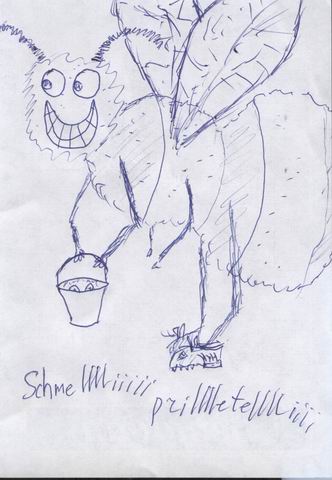 Schmellllliiiii
prilllletelllllliiii